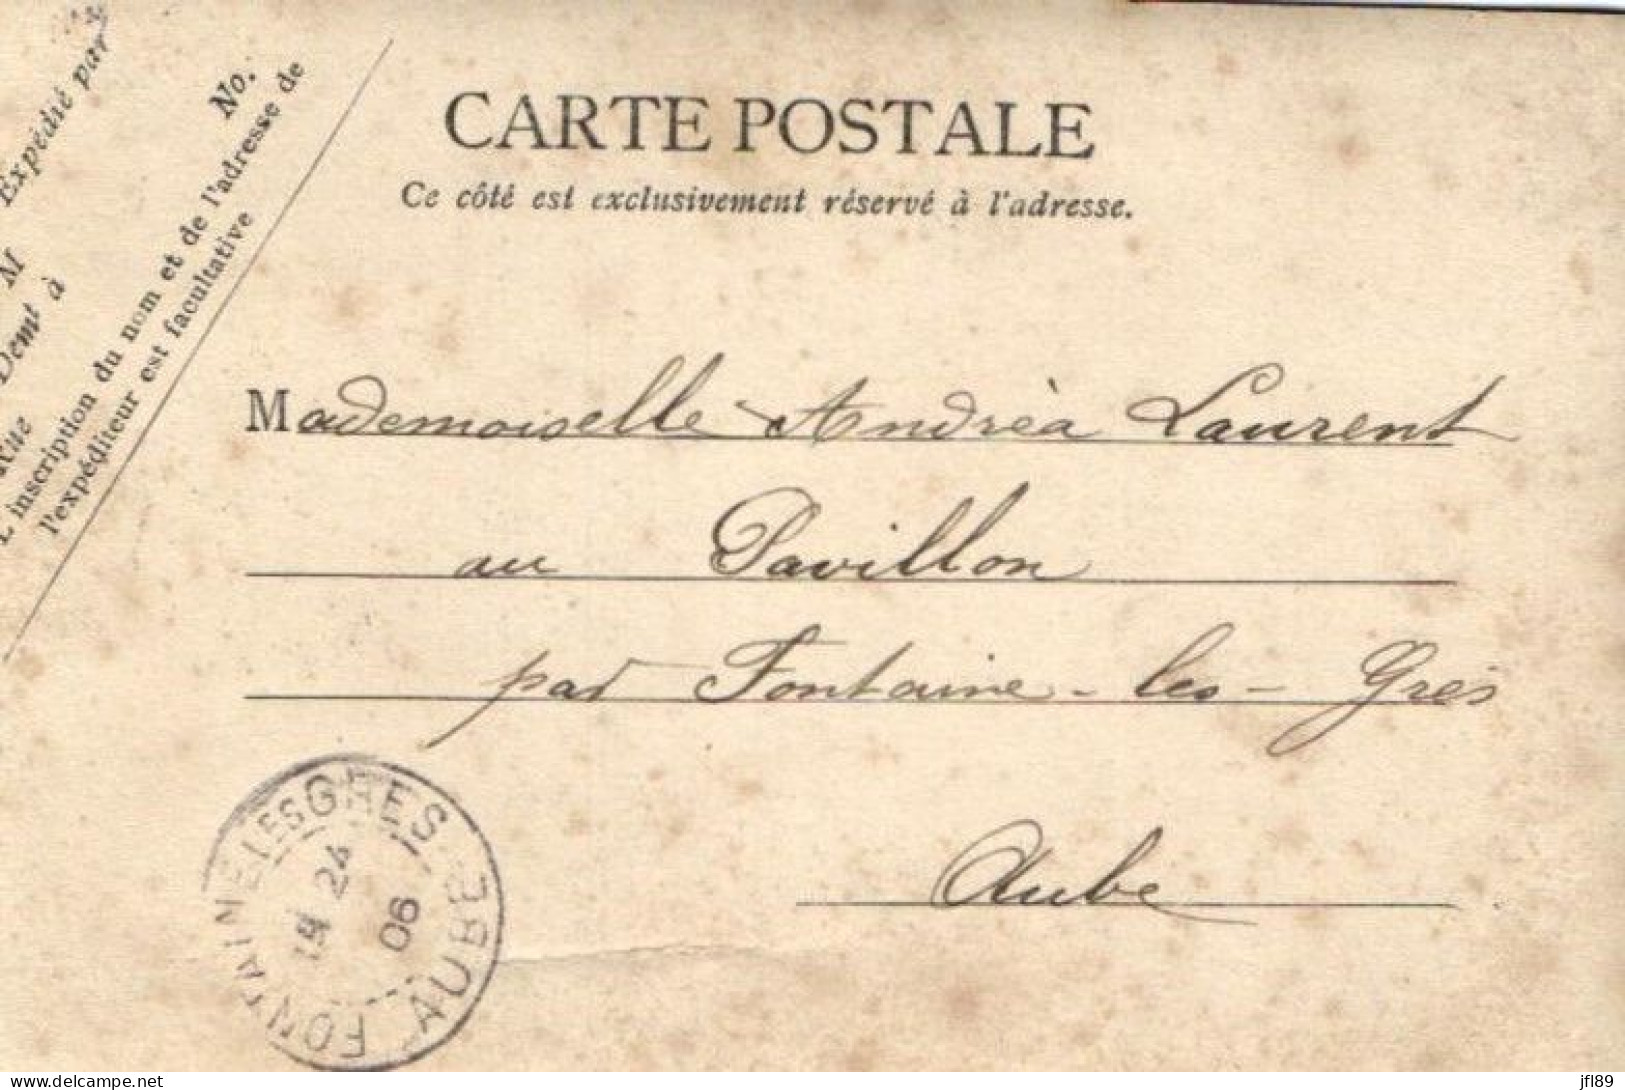 Expédié par
M
Demt à
Rue
No.
L'inscription du nom et de l'adresse de
l'expéditeur est facultative
CARTE POSTALE
Ce côté est exclusivement réservé à l'adresse.
Mademoiselle Andréa Laurent
au Pavillon
par Fontaine-les-Grès
Aube
FONTAINE LES GRES
24
06
AUBE
delcampe.net
jfl89